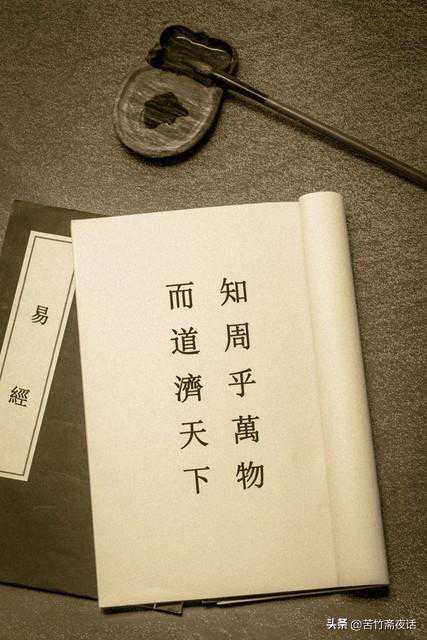 知周乎萬物
而道濟天下
易經
头条 @苦竹斋夜话